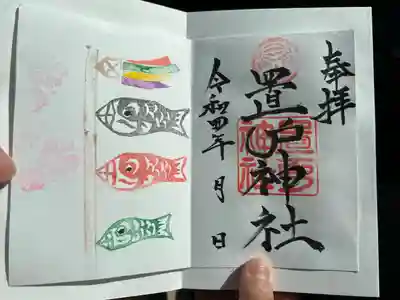 奉拝
置戸神社
令和四年 月 日